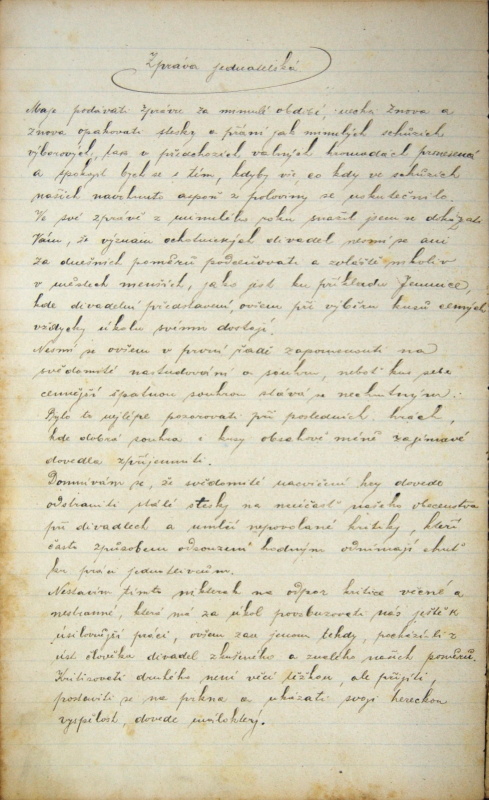 Zpráva jednatelská
Maje podávati zprávu za minulé období, mohu znova a
znova opakovati stesky a přání jak minulých schůzích
výborových, tak v předchozích valných hromadách pronesená
a spokojil bych se s tím, kdyby vše, co kdy ve schůzích
našich navrhnuto aspoň z poloviny se uskutečnilo.
Ve své zprávě z minulého roku snažil jsem se dokázati
Vám, že význam ochotnických divadel nesmí se ani
za dnešních poměrů podceňovati a zvláště nikoliv
v městech menších, jako jest ku příkladu Jemnice,
kde divadelní představení, ovšem při výběru kusů cenných
vždycky úkolu svému dostojí.
Nesmí se ovšem v první řadě zapomenouti na
svědomité nastudování a souhru, neboť kus sebe
cennější špatnou souhrou stává se nechutným.
Bylo to nejlépe pozorovati při posledních hrách,
kde dobrá souhra i kusy obsahově méně zajímavé
dovedla zpříjemniti.
Domnívám se, že svědomité nacvičení hry dovede
odstraniti stálé stesky na neúčast našeho obecenstva
při divadlech a umlčí nepovolané kritiky, kteří
často způsobem odsouzení hodným odnímají chuť
ku práci jednotlivcům.
Nestavím tímto nikterak na odpor kritice věcné a
nestranné, která má za úkol povzbuzovati nás ještě k
úsilovnější práci, ovšem zas jenom tehdy, pochází-li z
úst člověka divadel zkušeného a znalého našich poměrů.
Kritisovati druhého není věcí těžkou, ale přijíti,
postaviti se na prkna a ukázati svoji hereckou
vyspělost, dovede málokterý.